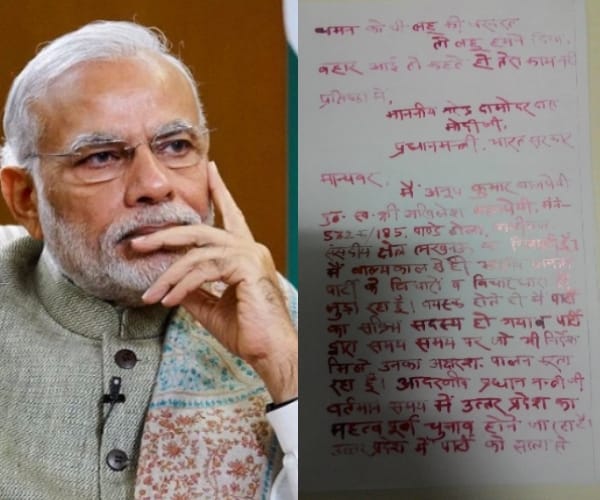 चमन को थी लहू की जरूरत
तो लहू हमने दिया,
बहार आई तो कहते हो तेरा काम नहीं
प्रतिष्ठा में,
माननीय नरेन्द्र दामोदर दास
मोदी जी,
प्रधानमन्त्री, भारत सरकार
मान्यवर,
मैं अनूप कुमार बाजपेयी
पुत्र स्व. श्री
524/195, पाण्डे टोला,
क्षेत्र लखनऊ का निवासी हूँ।
मैं बाल्यकाल से ही भारतीय जनता
पार्टी के विचारों व विचारधारा से
जुड़ा रहा हूँ। वयस्क होते ही मैं पार्टी
का सक्रिय सदस्य हो गया व पार्टी
द्वारा समय समय पर जो भी निर्देश
मिले उनका अक्षरशः पालन करता
रहा हूँ। आदरणीय प्रधान मन्त्री जी
वर्तमान समय में उत्तर प्रदेश का
महत्वपूर्ण चुनाव होने जा रहा है।
उत्तर प्रदेश में पार्टी को सत्ता से